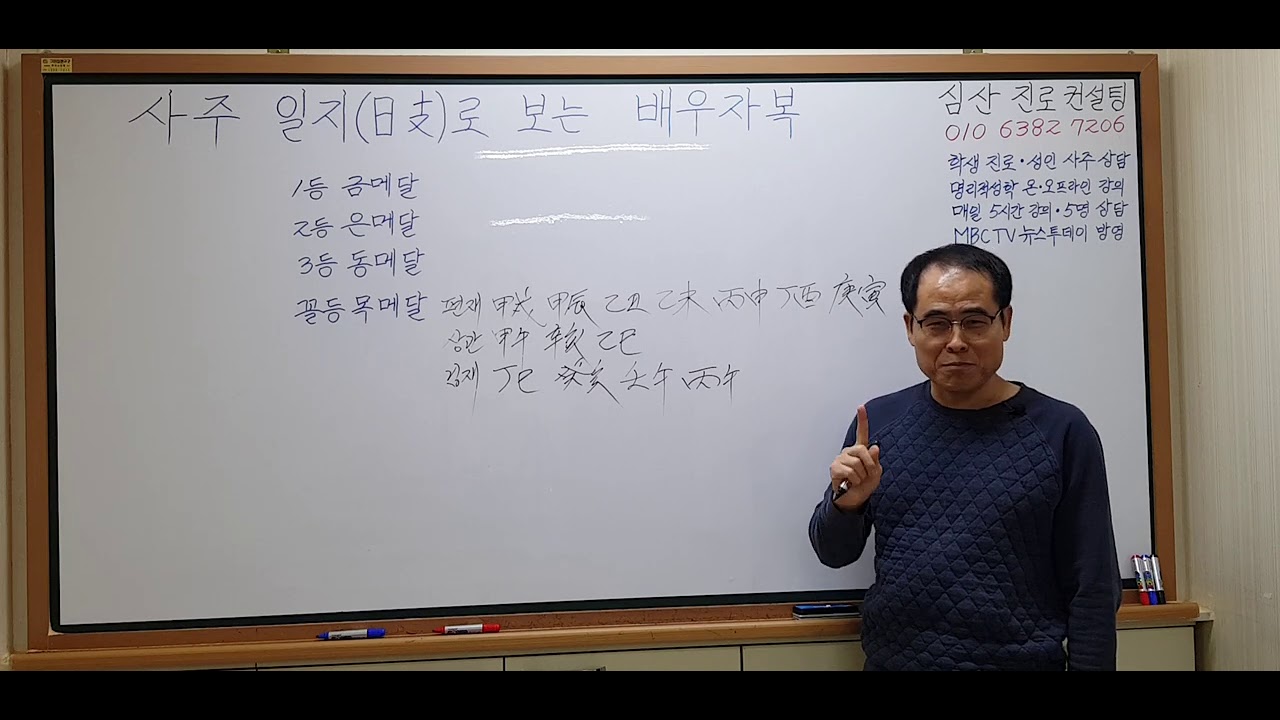 사주 일지(日支)로 보는 배우자복
1등 금메달
2등 은메달
3등 동메달
꼴등 목메달 편재 甲戌 甲辰 乙丑 乙未 丙申 丁酉 庚寅
상관 甲午 辛亥 乙巳
겁재 丁巳 癸亥 壬午 丙午
심산 진로 컨설팅
010 6382 7206
학생 진로·성인 사주 상담
명리적성학 온·오프라인 강의
매일 5시간 강의·5명 상담
MBC TV 뉴스투데이 방영